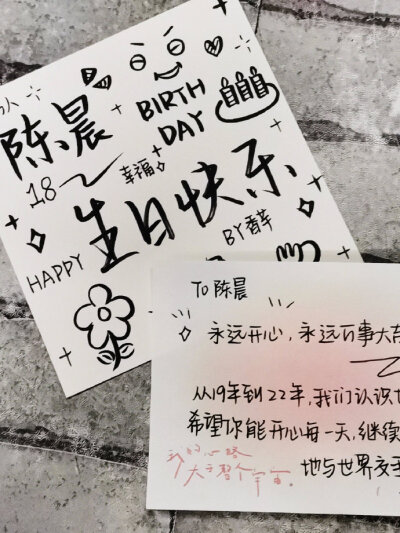 陈晨
BIRTH
DAY
18
幸福
生日快乐
HAPPY
BY香芋
To 陈晨
永远开心，永远万事大
从19年到22年，我们认识
希望你能开心每一天，继续
地与世界交
大于整个宇宙